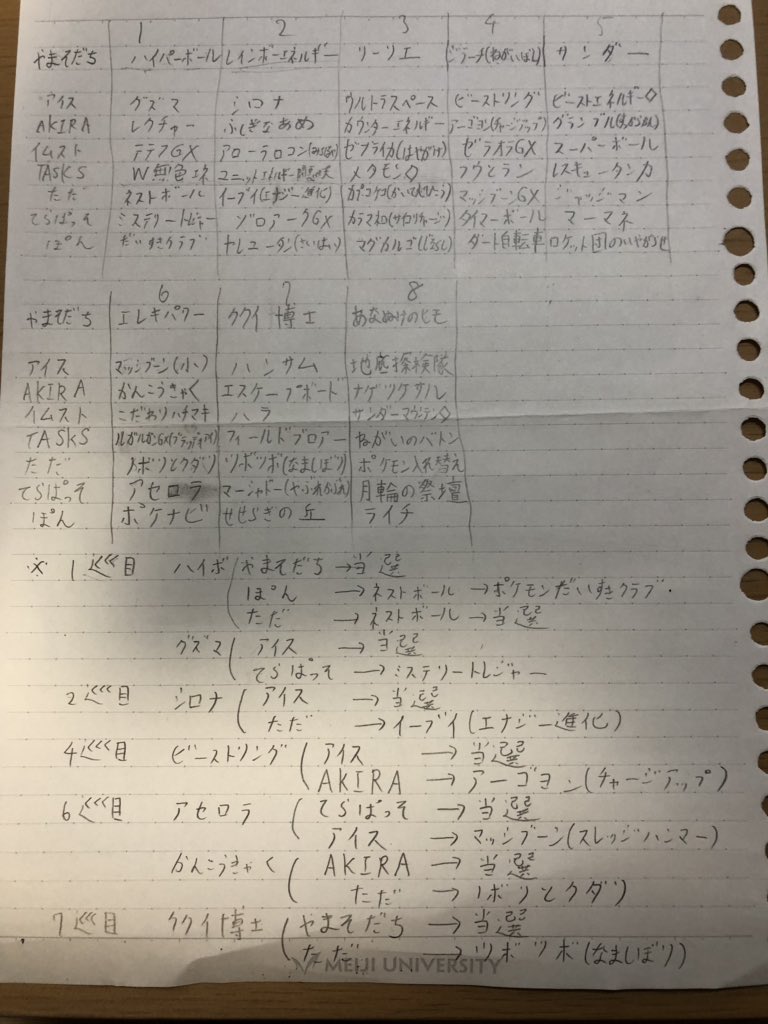 1 2 3 4 5
やまそだち ハイパーボール レインボーエネルギー リーリエ ジラーチ(ねがいぼし) サンダー
アイス グズマ シロナ ウルトラスペース ビーストリング ビーストエネルギー◇
AKIRA レクチャー ふしぎなあめ カウンターエネルギー アーゴヨン(チャージアップ) グランブル(
イムスト テテフGX アローラロコン(みちしるべ) ゼブライカ(はやがけ) ゼラオラGX スーパーボール
TASKS W無色エネ ユニットエネルギー メタモン◇ フウとラン レスキュータンカ
ただ ネストボール イーブイ(エナジー進化) カプ・コケコ(かいてんひこう) マッシブーンGX ジャッジマン
てらぱっそ ミステリートレジャー ゾロアークGX カラマネロ(サイコリチャージ) タイマーボール マーマネ
ぽん だいすきクラブ ヤレユータン(さいはい) マグカルゴ( ダート自転車 ロケット団のいやがらせ
6 7 8
やまそだち エレキパワー ククイ博士 あなぬけのヒモ
アイス マッシブーン(小) ハンサム 地底探検隊
AKIRA かんこうきゃく エスケープボード ナゲツケサル
イムスト こだわりハチマキ ハラ サンダーマウンテン◇
TASKS ルガルガンGX( フィールドブロアー ねがいのバトン
ただ ノボリとクダリ ツボツボ(なましぼり) ポケモン入れ替え
てらぱっそ アセロラ マーシャドー(やぶれかぶれ) 月輪の祭壇
ぽん ポケナビ せせらぎの丘 ライチ
※ 1巡目 ハイボ やまそだち→当選
ぽん →ネストボール →ポケモンだいすきクラブ.
ただ →ネストボール →当選
グズマ アイス →当選
てらぱっそ →ミステリートレジャー
2巡目 シロナ アイス →当選
ただ →イーブイ(エナジー進化)
4巡目 ビーストリング アイス →当選
AKIRA →アーゴヨン(チャージアップ)
6巡目 アセロラ てらぱっそ →当選
アイス →マッシブーン(スレッジハンマー)
かんこうきゃく AKIRA →当選
ただ →ノボリとクダリ
7巡目 ククイ博士 やまそだち →当選
ただ →ツボツボ(なましぼり)
MEIJI UNIVERSITY